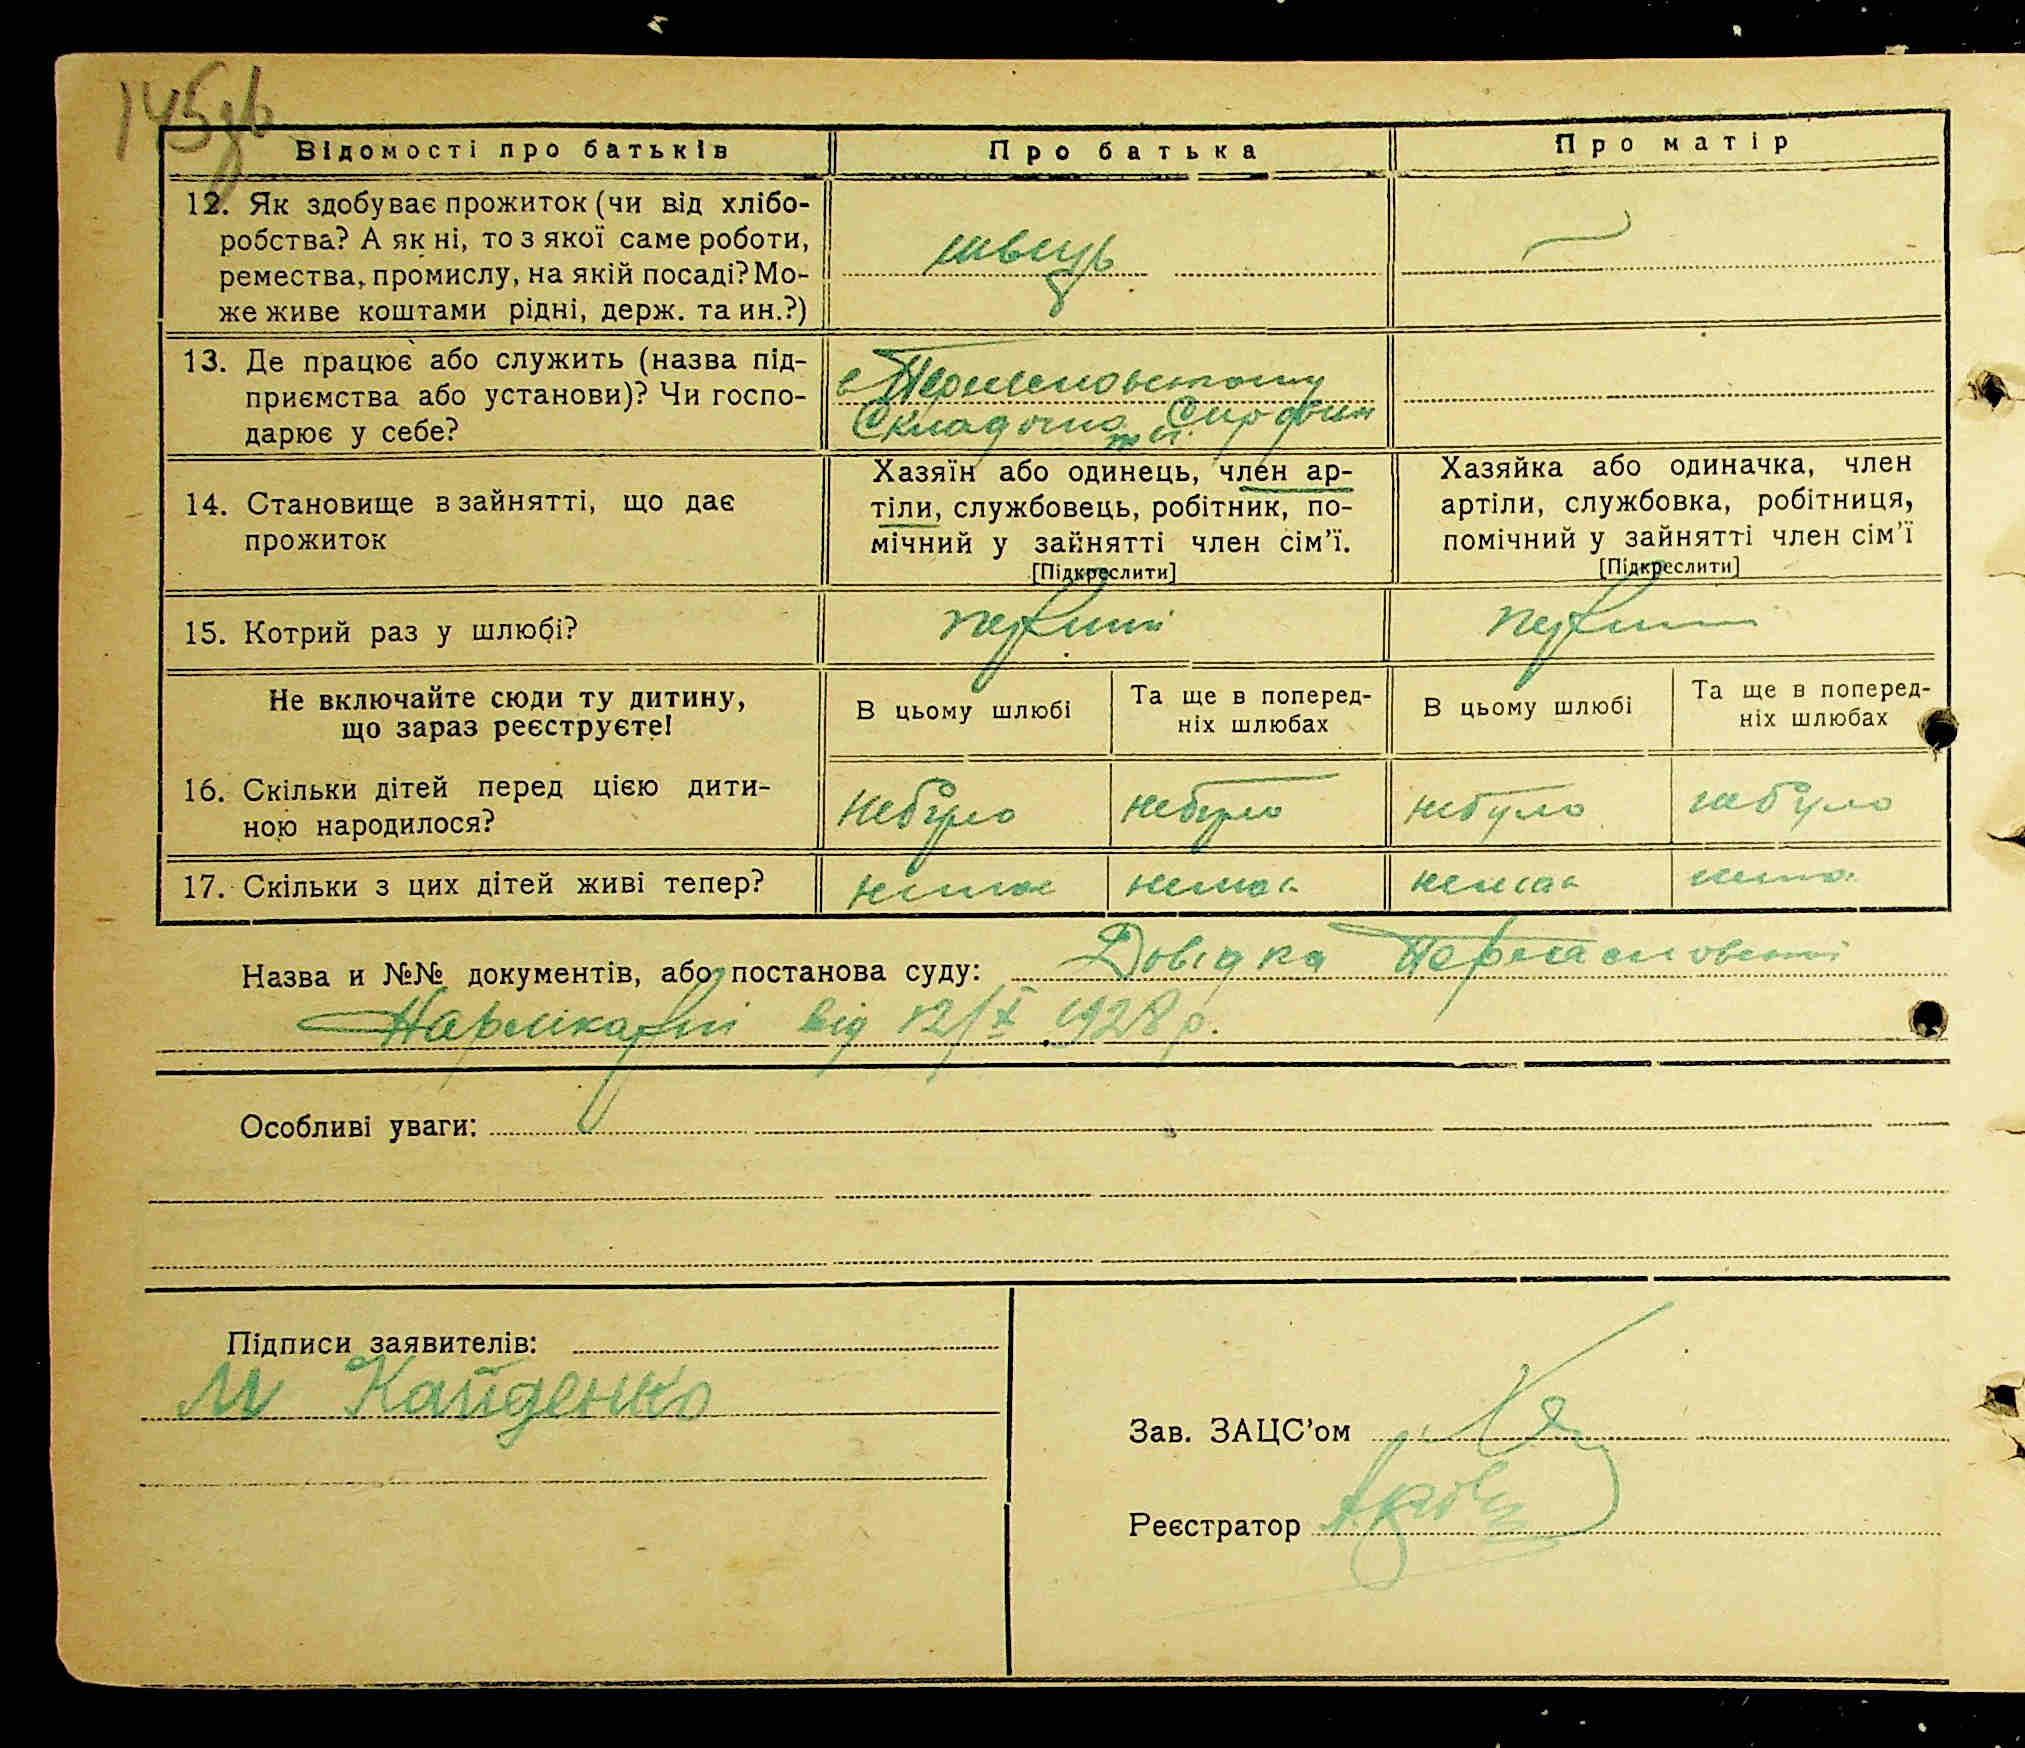 145зв
Відомості про батьків
Про батька
Про матір
12. Як здобуває прожиток (чи від хлібо-
робства? А як ні, то з якої саме роботи,
ремества, промислу, на якій посаді? Мо-
же живе коштами рідні, держ. та ин.?)
швець
13. Де працює або служить (назва під-
приємства або установи)? Чи госпо-
дарює у себе?
14. Становище в зайнятті, що дає
прожиток
Хазяїн або одинець, член ар-
тіли, службовець, робітник, по-
мічний у зайнятті член сім'ї.
[Підкреслити]
Хазяйка або одиначка, член
артіли, службовка, робітниця,
помічний у зайнятті член сім'ї
[Підкреслити]
15. Котрий раз у шлюбі?
первий
первий
Не включайте сюди ту дитину,
що зараз реєструєте!
В цьому шлюбі
Та ще в поперед-
ніх шлюбах
В цьому шлюбі
Та ще в поперед-
ніх шлюбах
16. Скільки дітей перед цією дити-
ною народилося?
небуло
небуло
небуло
небуло
17. Скільки з цих дітей живі тепер?
немає
немає
немає
немає
Назва и №№ документів, або постанова суду: Довідка
від 12/X 1928 р.
Особливі уваги:
Підписи заявителів:
М Кайденко
Зав. ЗАЦС'ом
Реєстратор